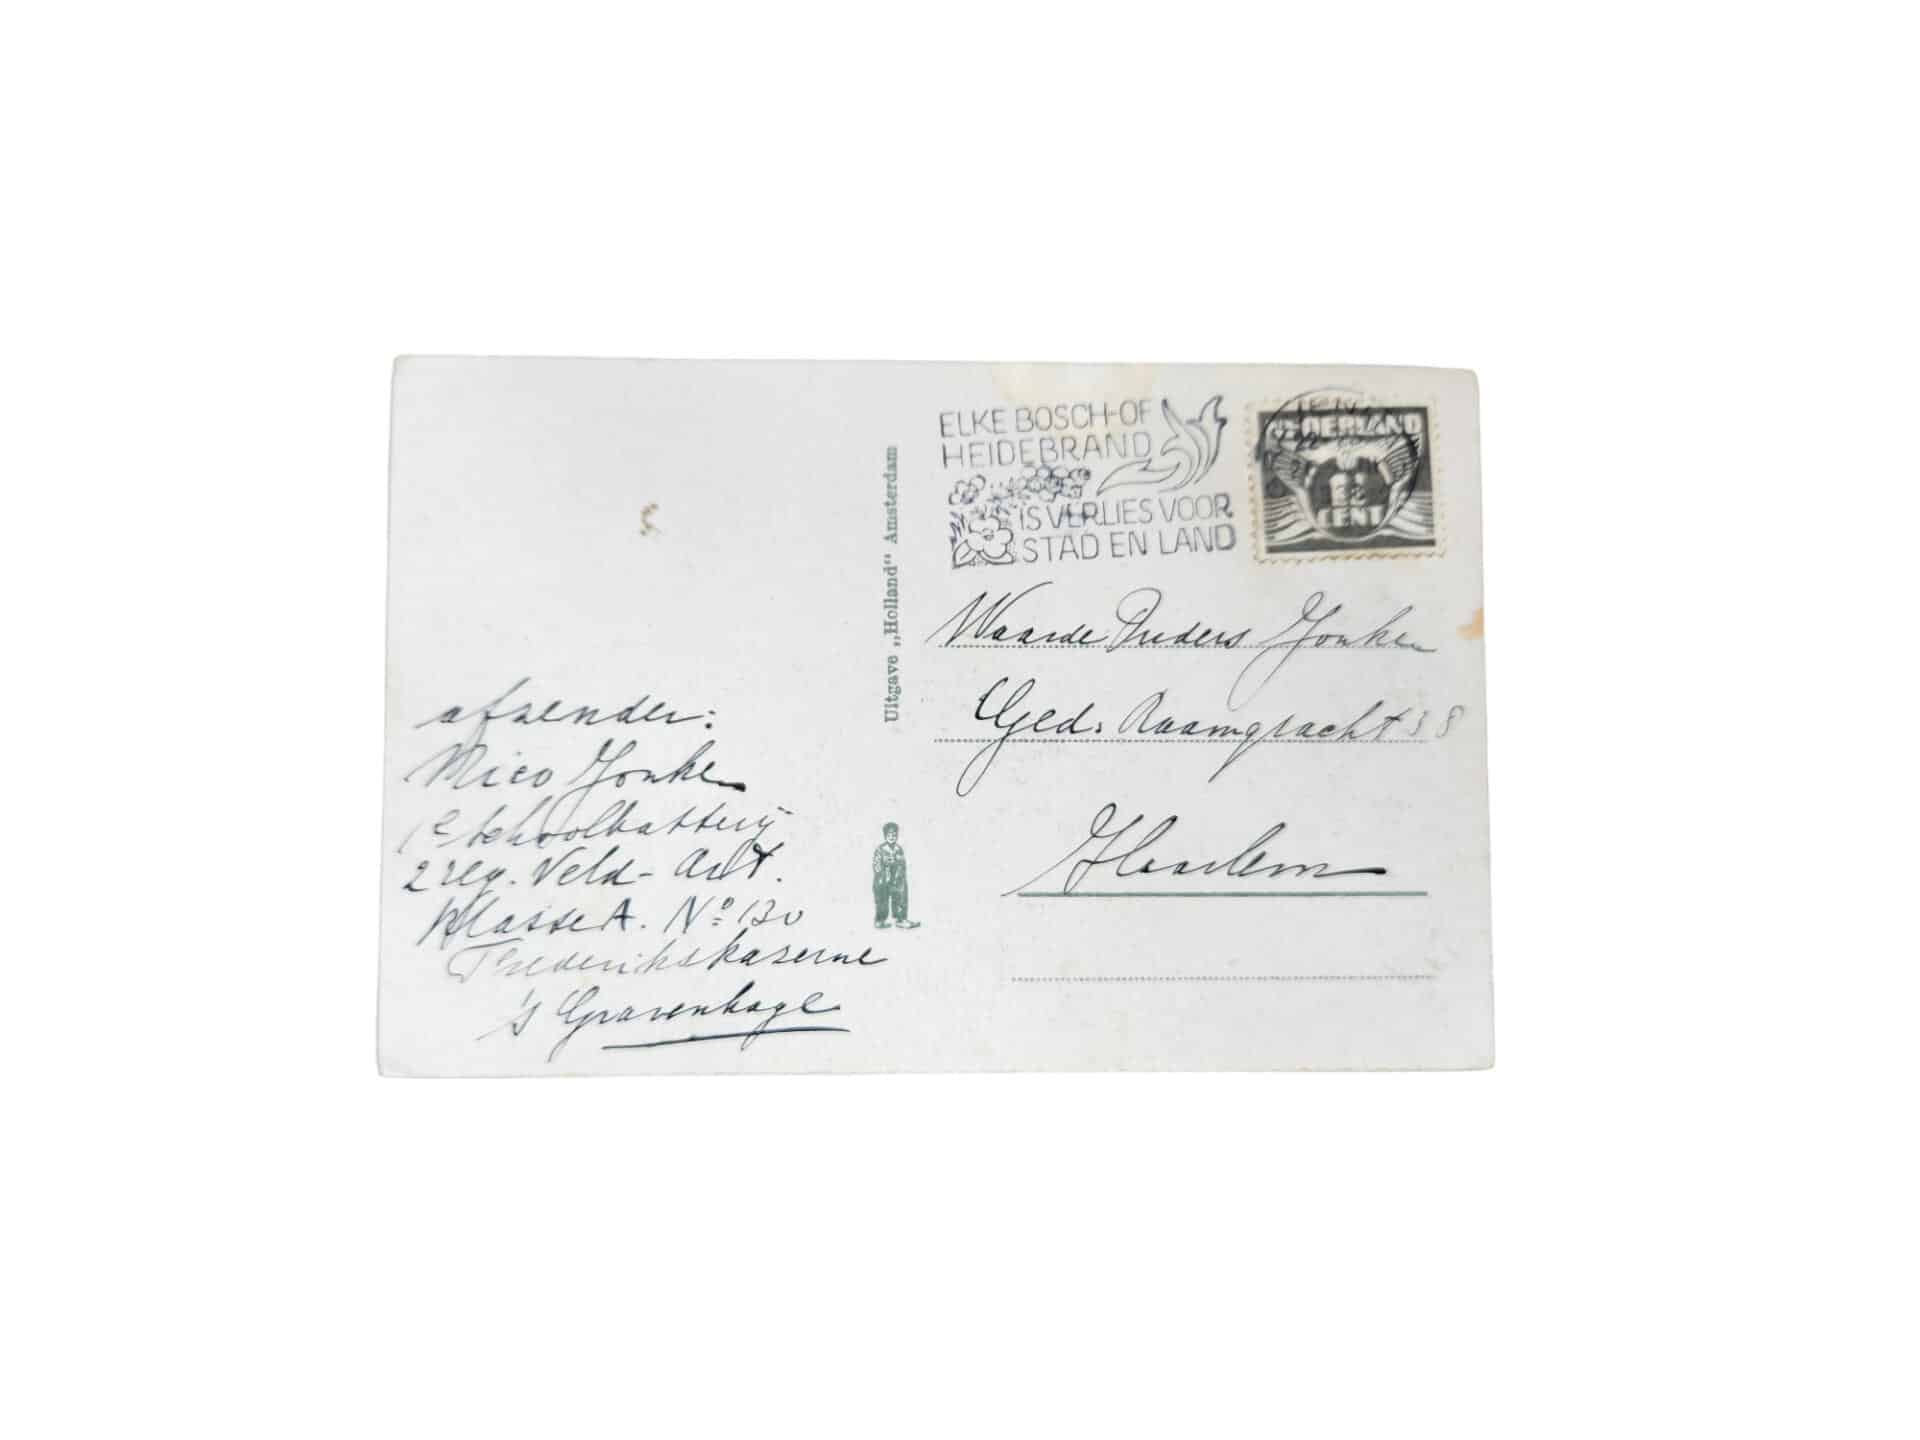 ELKE BOSCH-OF
HEIDEBRAND
IS VERLIES VOOR
STAD EN LAND
NEDERLAND
CENT
Uitgave „Holland" Amsterdam
Waarde Ouders Jonker
Ged. Raamgracht 38
Haarlem
afzender:
Nico Jonker
1e schoolbatterij
2 reg. Veld-Art.
Klasse A. No 130
Frederikskazerne
's Gravenhage